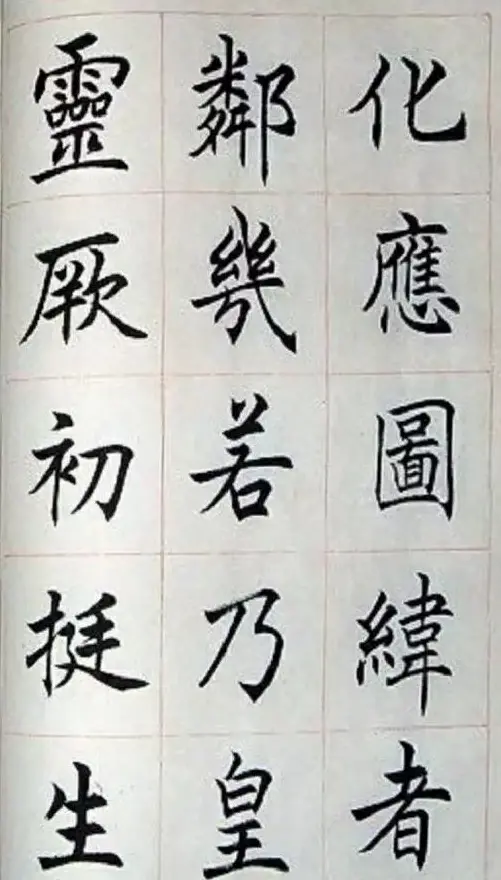 化應圖緯者
鄰幾若乃皇
靈厥初挺生